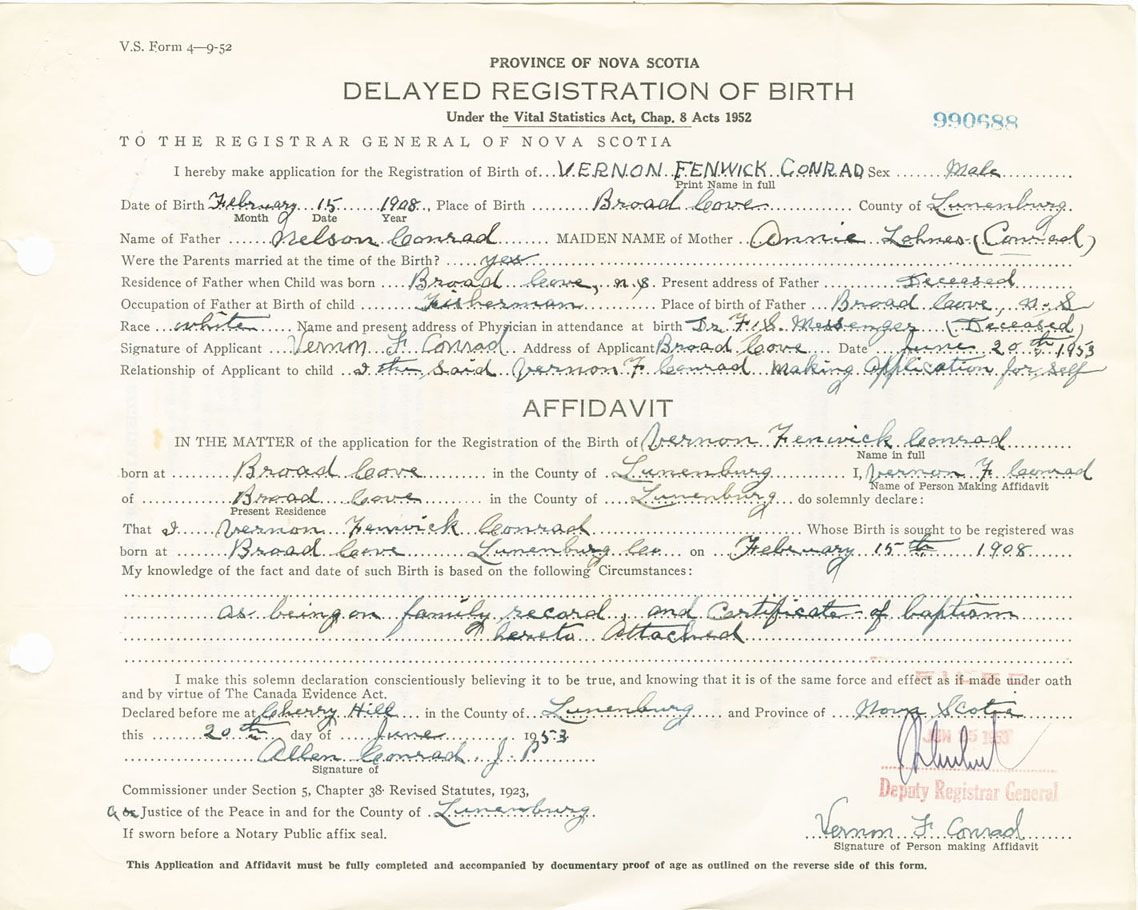 V.S. Form 4—9-52
PROVINCE OF NOVA SCOTIA
DELAYED REGISTRATION OF BIRTH
Under the Vital Statistics Act, Chap. 8 Acts 1952
990688
TO THE REGISTRAR GENERAL OF NOVA SCOTIA
I hereby make application for the Registration of Birth of VERNON FENWICK CONRAD Sex Male
Print Name in full
Date of Birth February 15 1908. Place of Birth Broad Cove County of Lunenburg.
Month Date Year
Name of Father Nelson Conrad MAIDEN NAME of Mother Annie Lohnes (Conrad)
Were the Parents married at the time of the Birth? yes
Residence of Father when Child was born Broad Cove, N.S. Present address of Father Deceased
Occupation of Father at Birth of child Fisherman Place of birth of Father Broad Cove, N.S
Race white Name and present address of Physician in attendance at birth Dr. F.S. Messenger (Deceased)
Signature of Applicant Vernon F Conrad Address of Applicant Broad Cove Date June 20th 1953
Relationship of Applicant to child I the said Vernon F Conrad Making Application for self
AFFIDAVIT
IN THE MATTER of the application for the Registration of the Birth of Vernon Fenwick Conrad
Name in full
born at Broad Cove in the County of Lunenburg I, Vernon F Conrad
Name of Person Making Affidavit
of Broad Cove in the County of Lunenburg do solemnly declare:
Present Residence
That I Vernon Fenwick Conrad Whose Birth is sought to be registered was
born at Broad Cove Lunenburg Co on February 15th 1908
My knowledge of the fact and date of such Birth is based on the following Circumstances:
as being on family record, and Certificate of baptism
hereto Attached
I make this solemn declaration conscientiously believing it to be true, and knowing that it is of the same force and effect as if made under oath
and by virtue of The Canada Evidence Act.
Declared before me at Cherry Hill in the County of Lunenburg and Province of Nova Scotia
this 20th day of June 1953
Allen Conrad J.P.
Signature of
Commissioner under Section 5, Chapter 38 Revised Statutes, 1923,
Deputy Registrar General
or Justice of the Peace in and for the County of Lunenburg.
If sworn before a Notary Public affix seal.
Vernon F Conrad
Signature of Person making Affidavit
This Application and Affidavit must be fully completed and accompanied by documentary proof of age as outlined on the reverse side of this form.